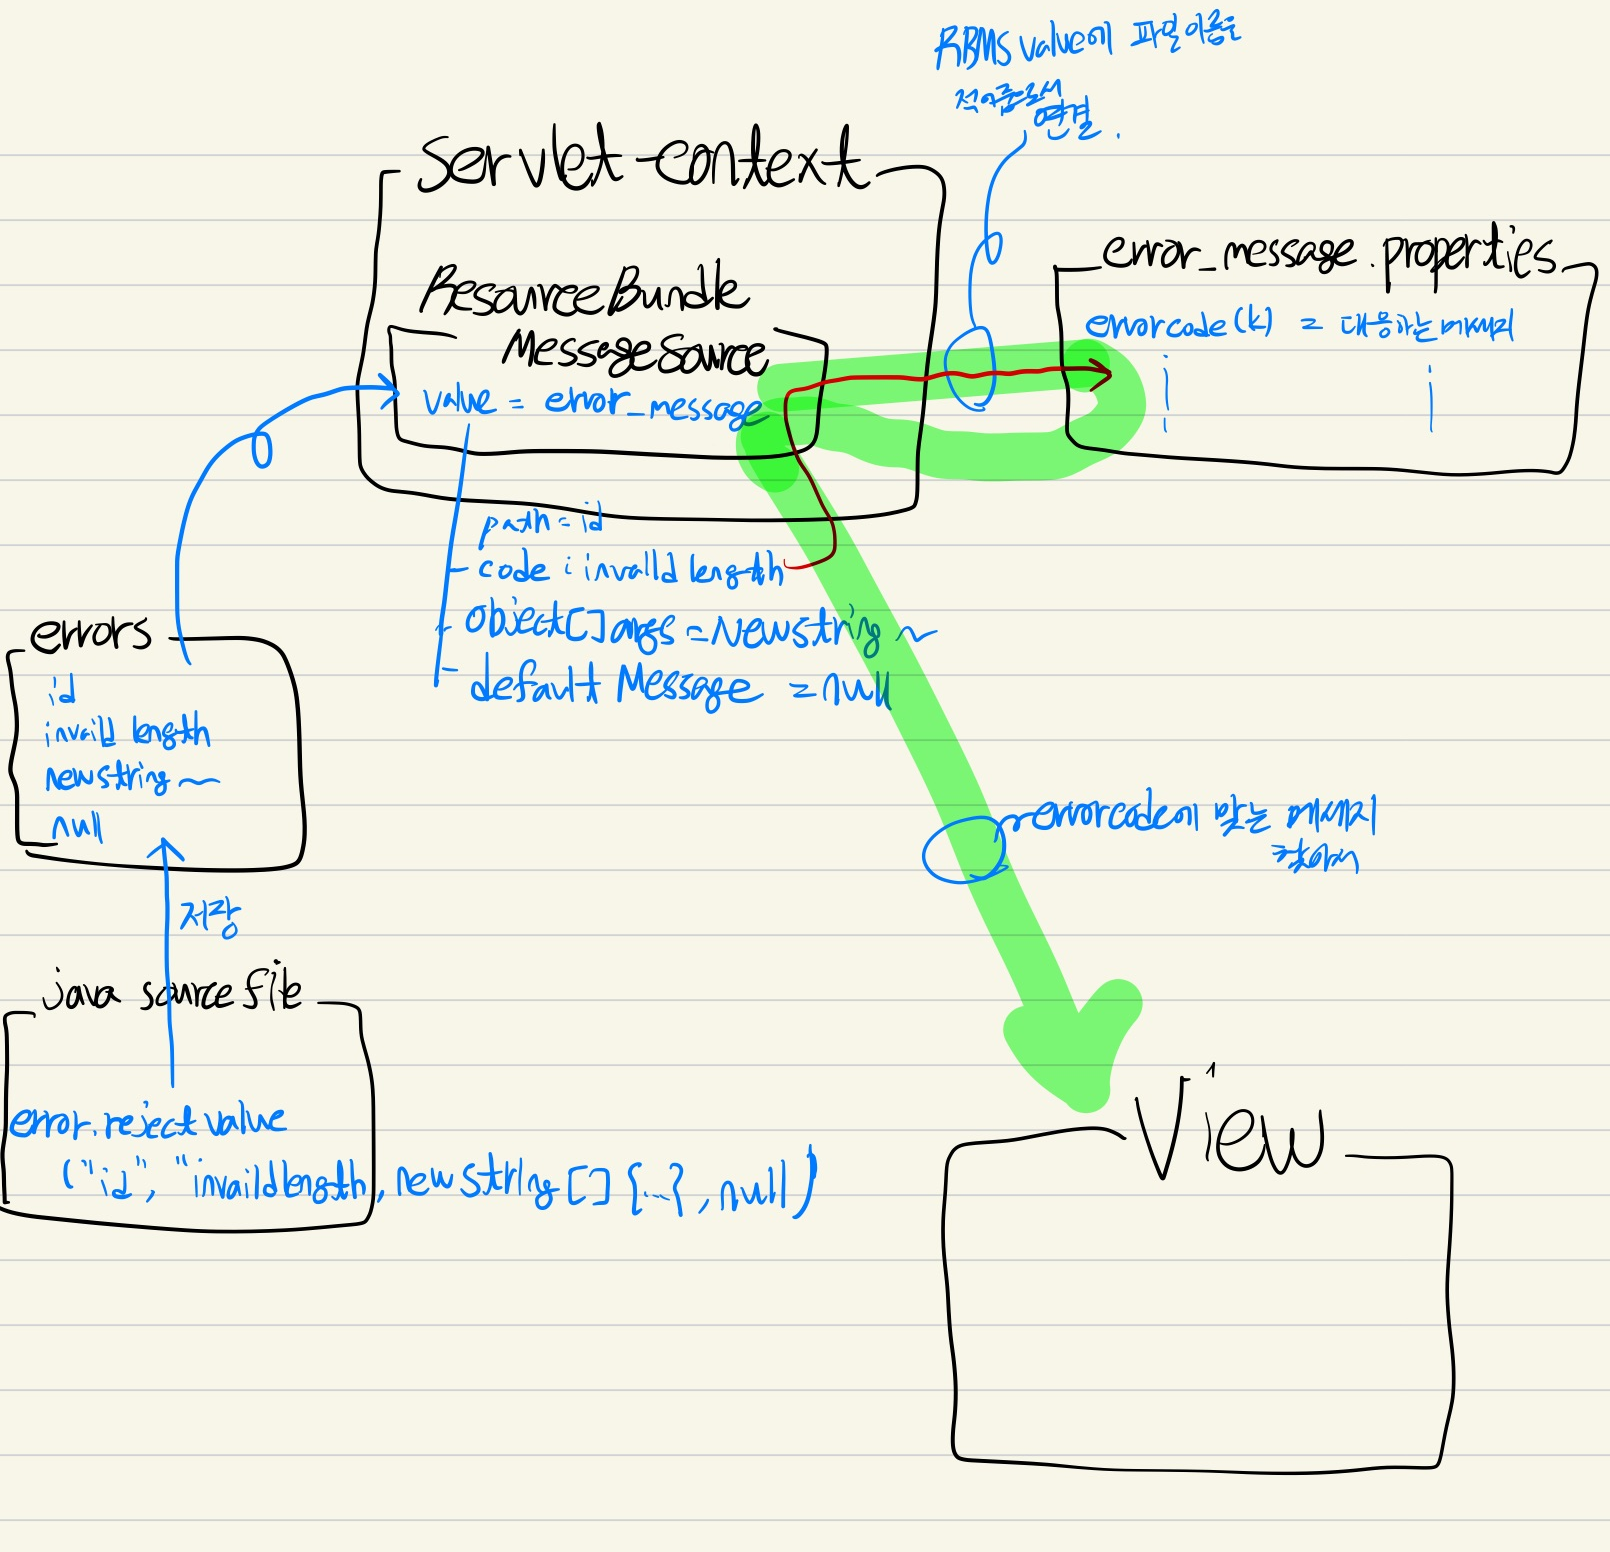 RBMS value에 파일이름을
적어줌으로서
연결.
Servlet-context
ResourceBundle
MessageSource
value = error_message
error_message.properties
errorcode(k) = 대응하는 메세지
path = id
code : invalld length
object[] args = Newstring ~
default Message = null
errors
id
invaild length
newstring ~
null
저장
errorcode에 맞는 메세지
찾아서
java source file
error.reject value
("id", "invaild length, new string [] {...}, null)
View